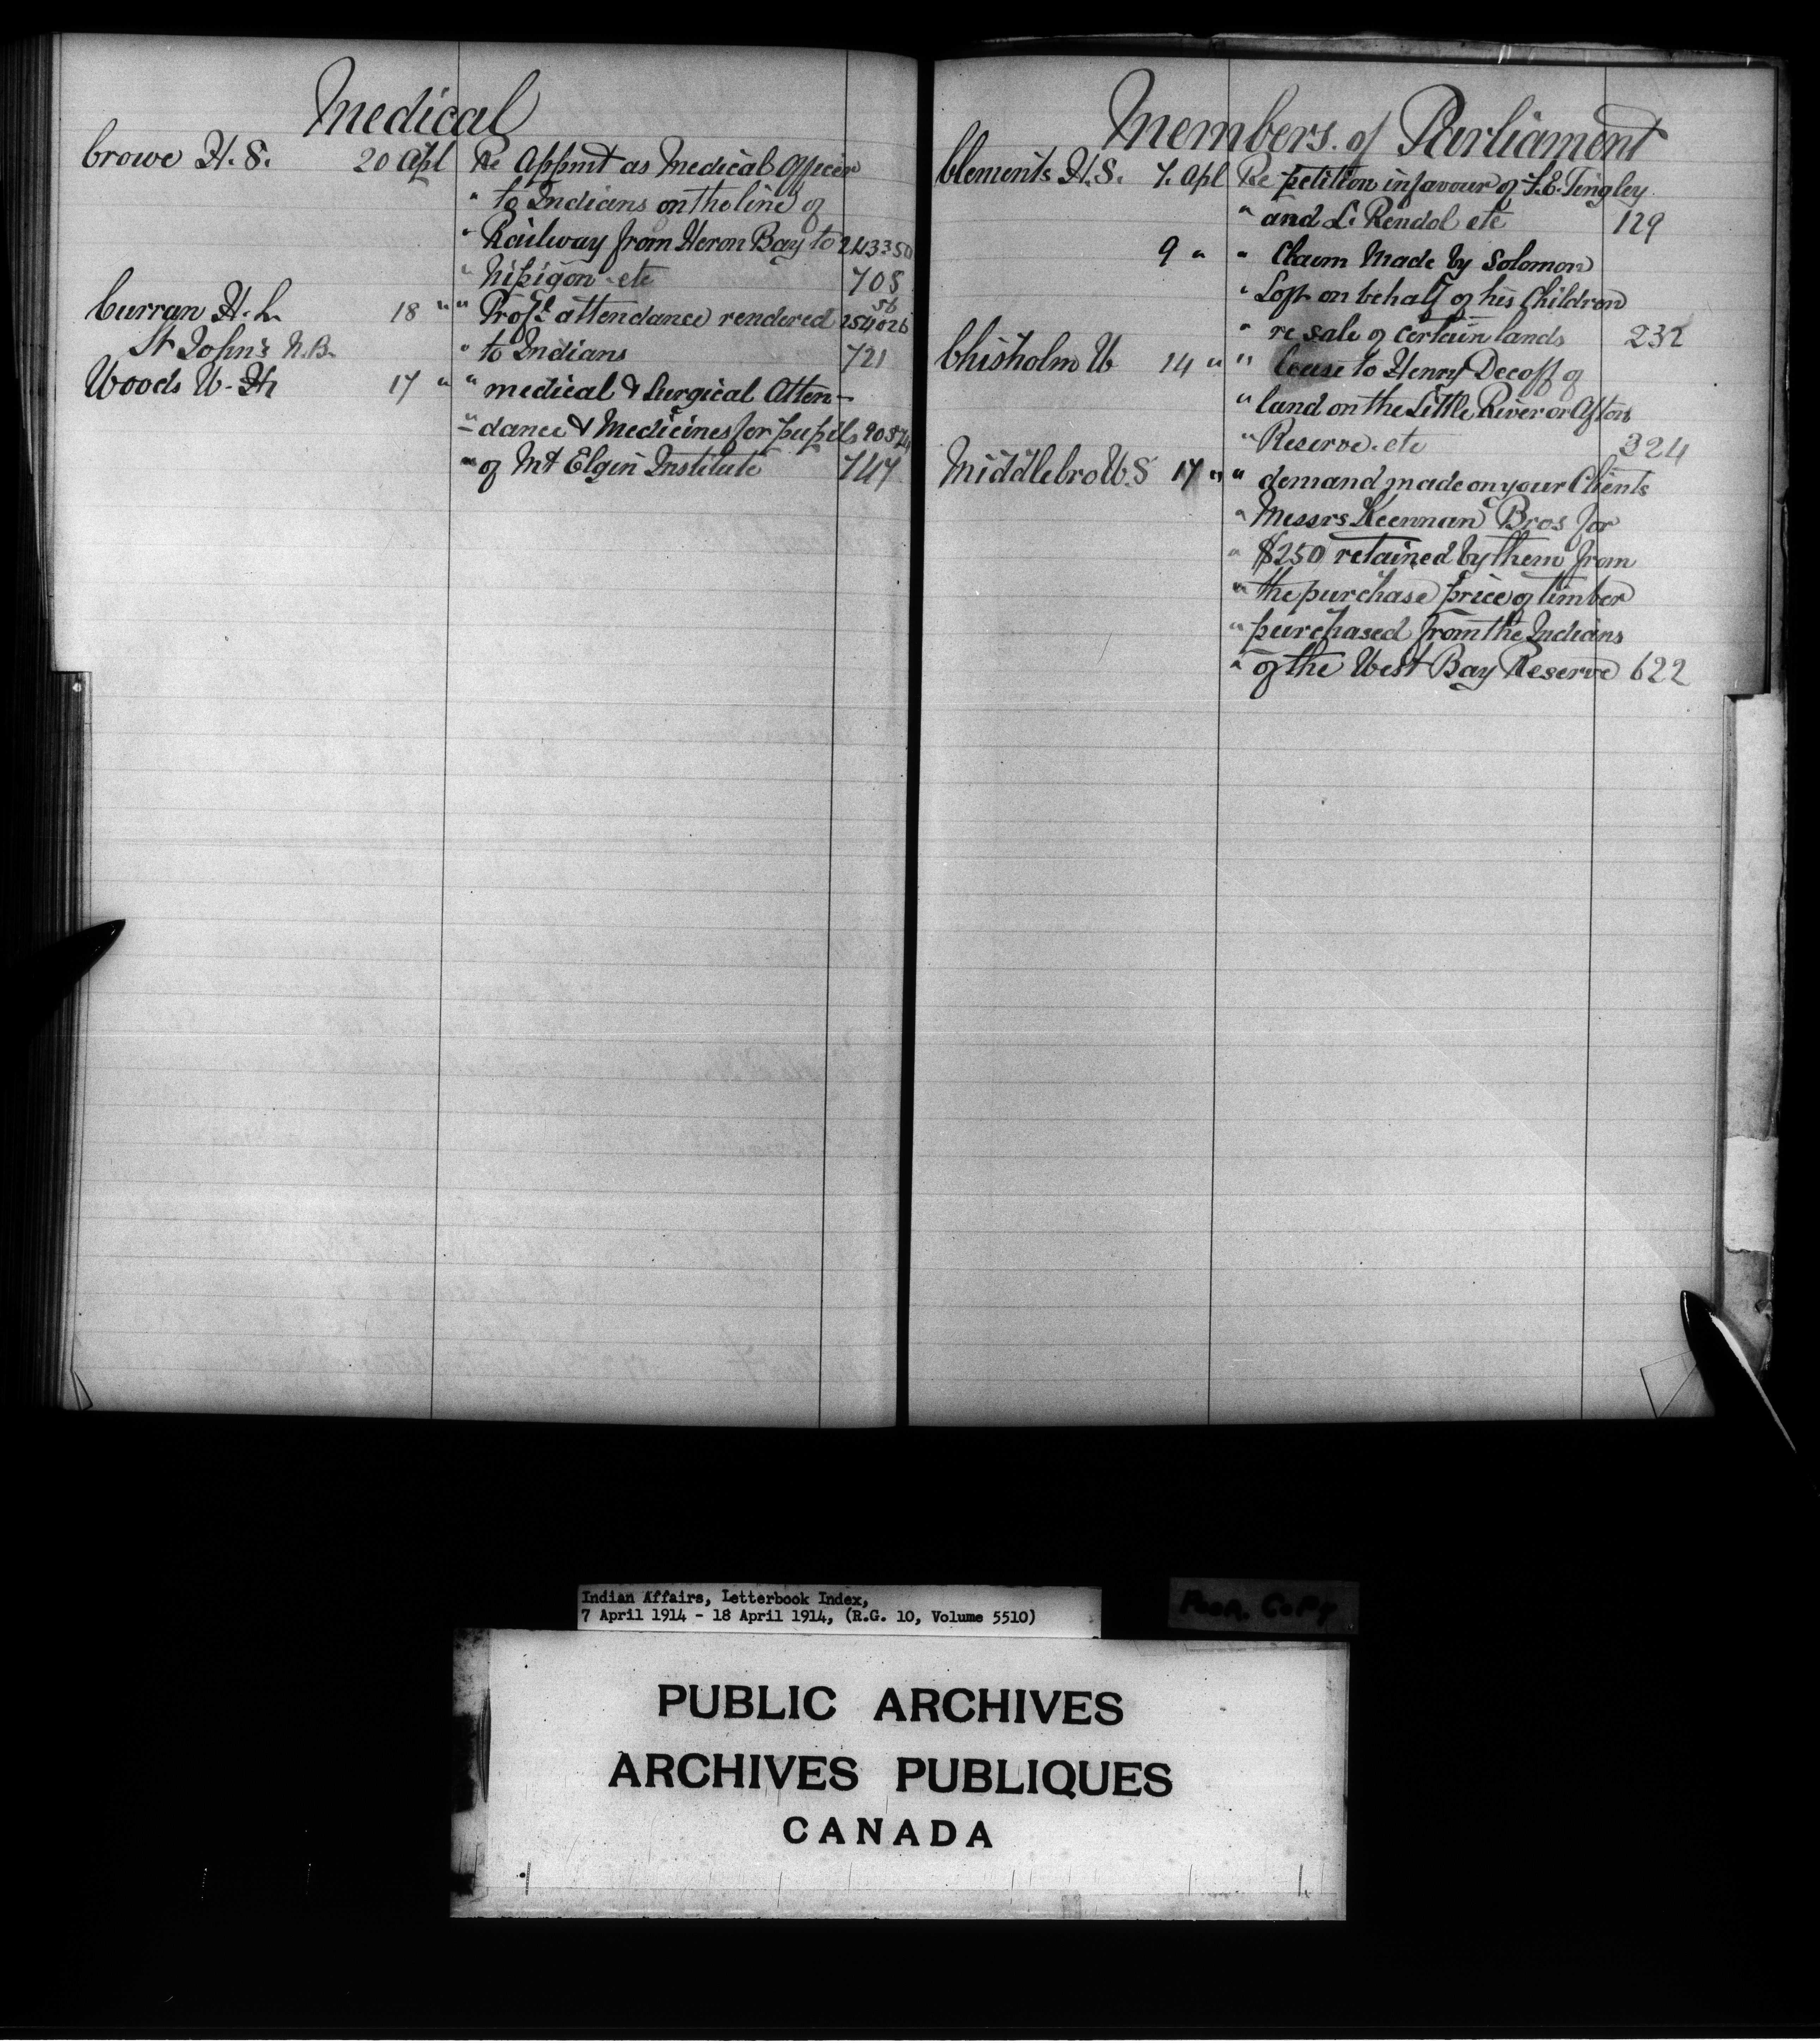 Medical
Crowe H. S. 20 Apl Re Appmt as Medical Officer
" to Indians on the line of
" Railway from Heron Bay to 243350
" Nipigon etc 708
Curran H. L. 18 " " Prof'l attendance rendered 254026 56
St John's N.B. " to Indians 721
Woods W. H 17 " " medical & Surgical Atten-
" dance & Medicines for pupils
" of Mt Elgin Institute 747
Members. of Parliament
Clements H. S. 7. Apl Re petition in favour of F. E. Tingley
" and L. Rendol etc 129
9 " " Claim Made by Solomon
" Loft on behalf of his Children
" re sale of certain lands 232
Chisholm W 14 " " lease to Henry Decoff of
" land on the Little River or Afton
" Reserve. etc 324
Middlebro W. S 17 " " demand made on your Clients
" Messrs Keenan Bros for
" $250 retained by them from
" the purchase price of timber
" purchased from the Indians
" of the West Bay Reserve 622
Indian Affairs, Letterbook Index,
7 April 1914 - 18 April 1914, (R.G. 10, Volume 5510)
Poor. Copy
PUBLIC ARCHIVES
ARCHIVES PUBLIQUES
CANADA